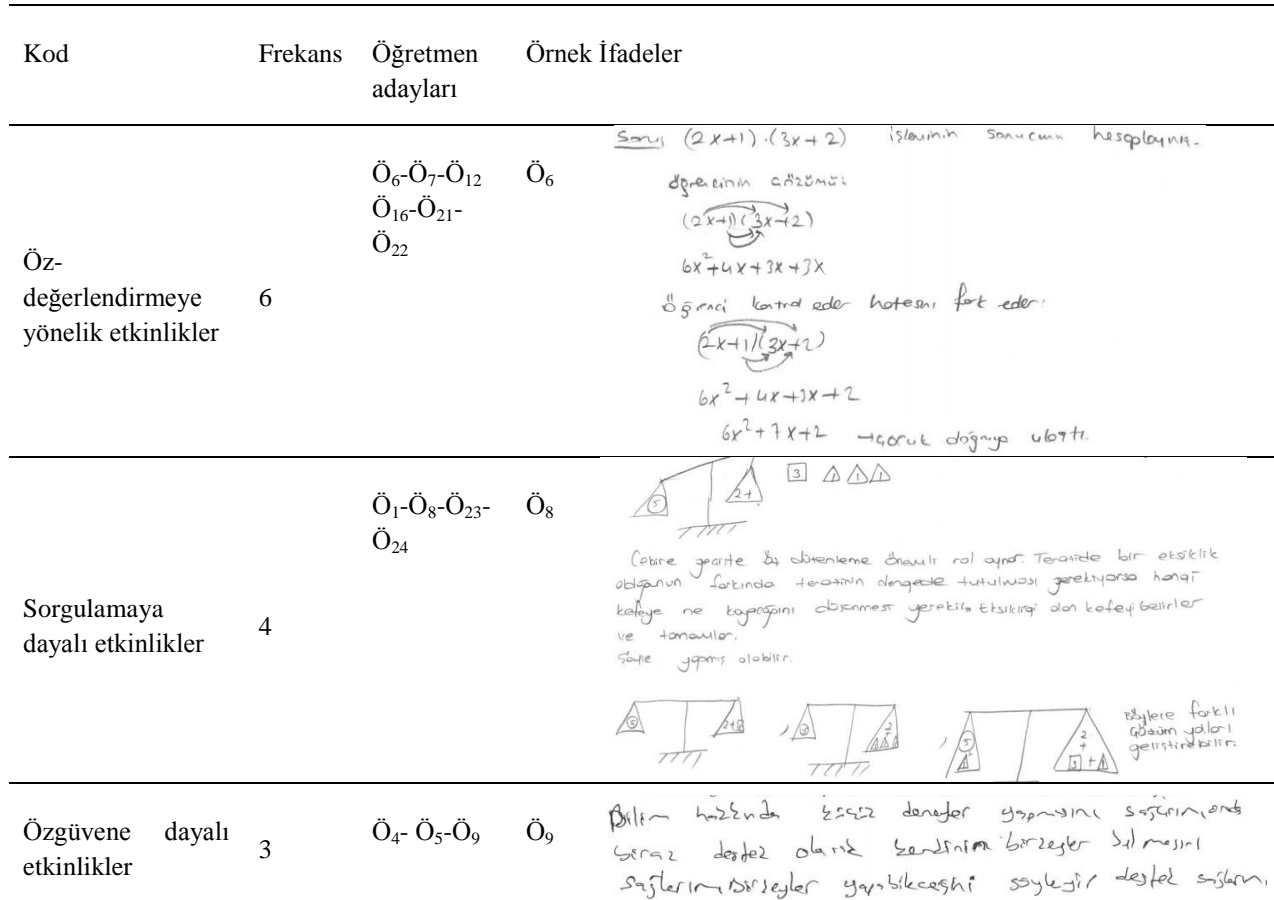 Kod Frekans Öğretmen adayları Örnek İfadeler
Öz-değerlendirmeye yönelik etkinlikler
6
Ö6-Ö7-Ö12
Ö16-Ö21-
Ö22
Ö6
Soru (2x+1).(3x+2) işleminin sonucunu hesaplayınız.
Öğrencinin çözümü:
(2x+1)(3x+2)
6x²+4x+3x+3x
Öğrenci kontrol eder hatasını fark eder:
(2x+1)(3x+2)
6x²+4x+3x+2
6x²+7x+2 →çocuk doğruya ulaştı.
Sorgulamaya
dayalı etkinlikler
4
Ö1-Ö8-Ö23-
Ö24
Ö8
5 2+ 3 1 1 1
Cebire geçişte öz düzenleme önemli rol oynar. Terazide bir eksiklik
olduğunun farkında terazinin dengede tutulması gerekiyorsa hangi
kefeye ne koyacağını düşünmesi gerekir. Eksikliği olan kefeyi belirler
ve tamamlar.
Şöyle yapmış olabilir.
5 2+3 , 5 2+ 1 1 1 , 5 + 1 2 + 3 + 1
Böylece farklı
çözüm yolları
geliştirebilir.
Özgüvene dayalı
etkinlikler
3
Ö4- Ö5-Ö9
Ö9
Bilim hakkında deneyler yapmasını sağlarım, ona
biraz destek olarak kendinin birşeyler bilmesini
sağlarım, birşeyler yapabileceğini söyleyip destek sağlarım.